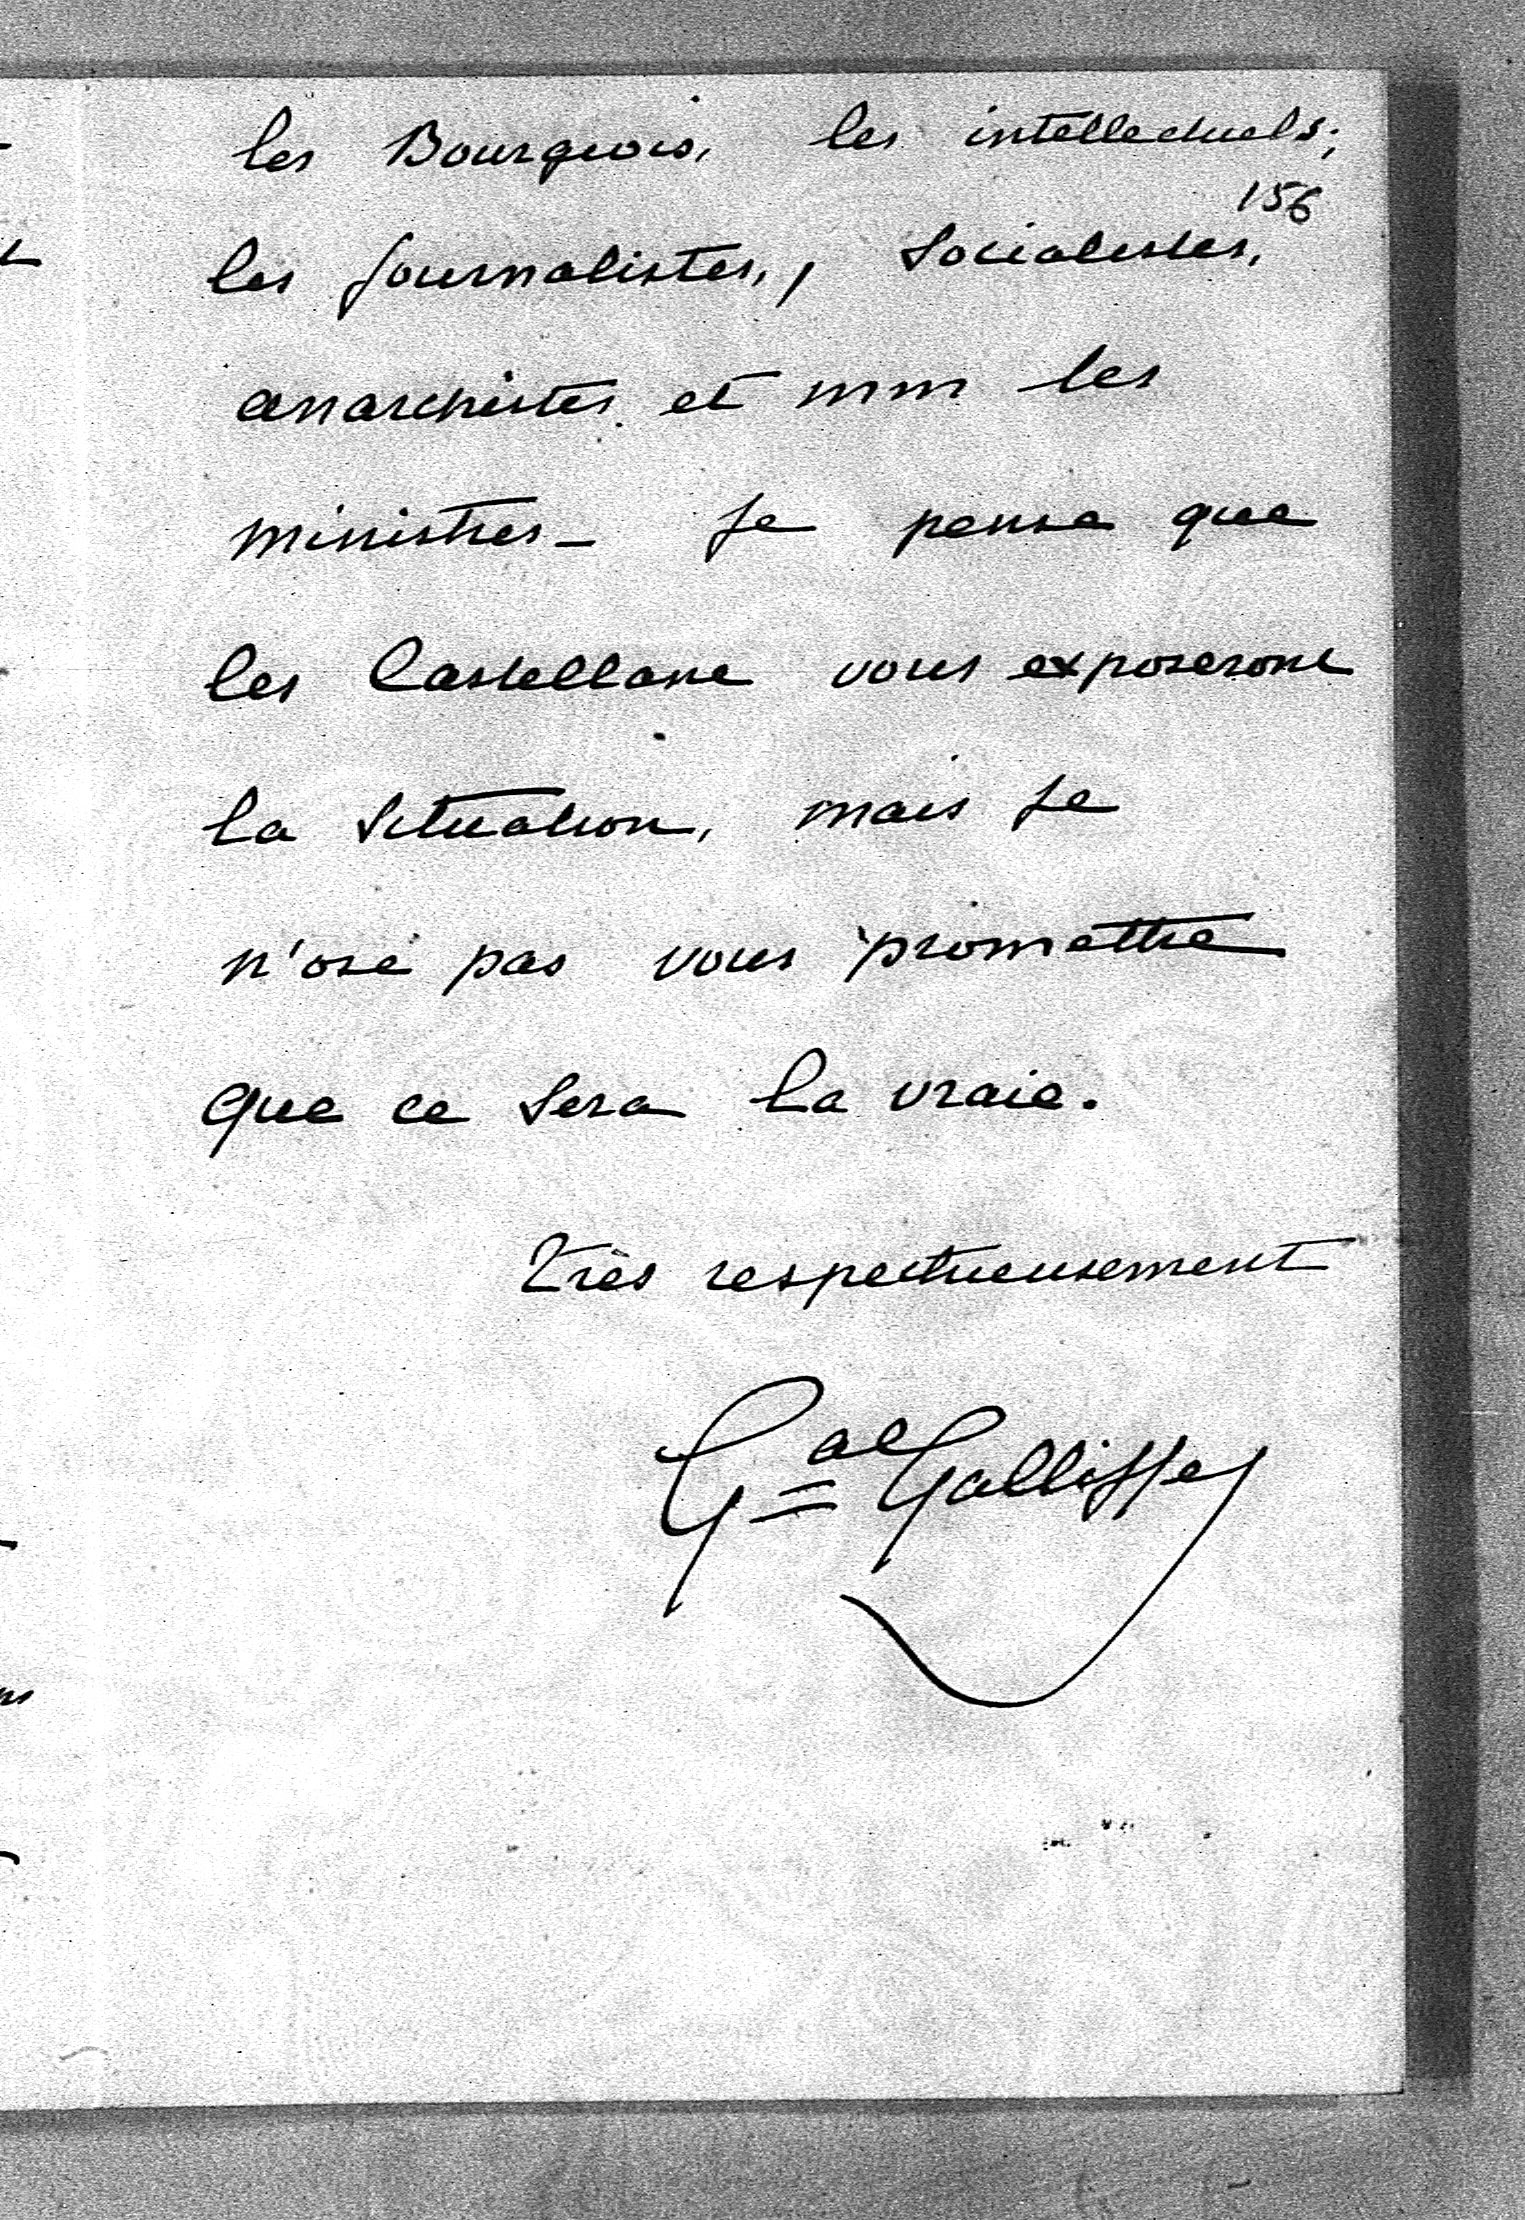 les Bourgeois, les intellectuels,
156
les journalistes,, socialistes,
anarchistes et mm les
ministres - je pense que
les Castellane vous exposeront
la situation, mais je
n'ose pas vous promettre
que ce sera la vraie.
Très respectueusement
Gal Galliffet